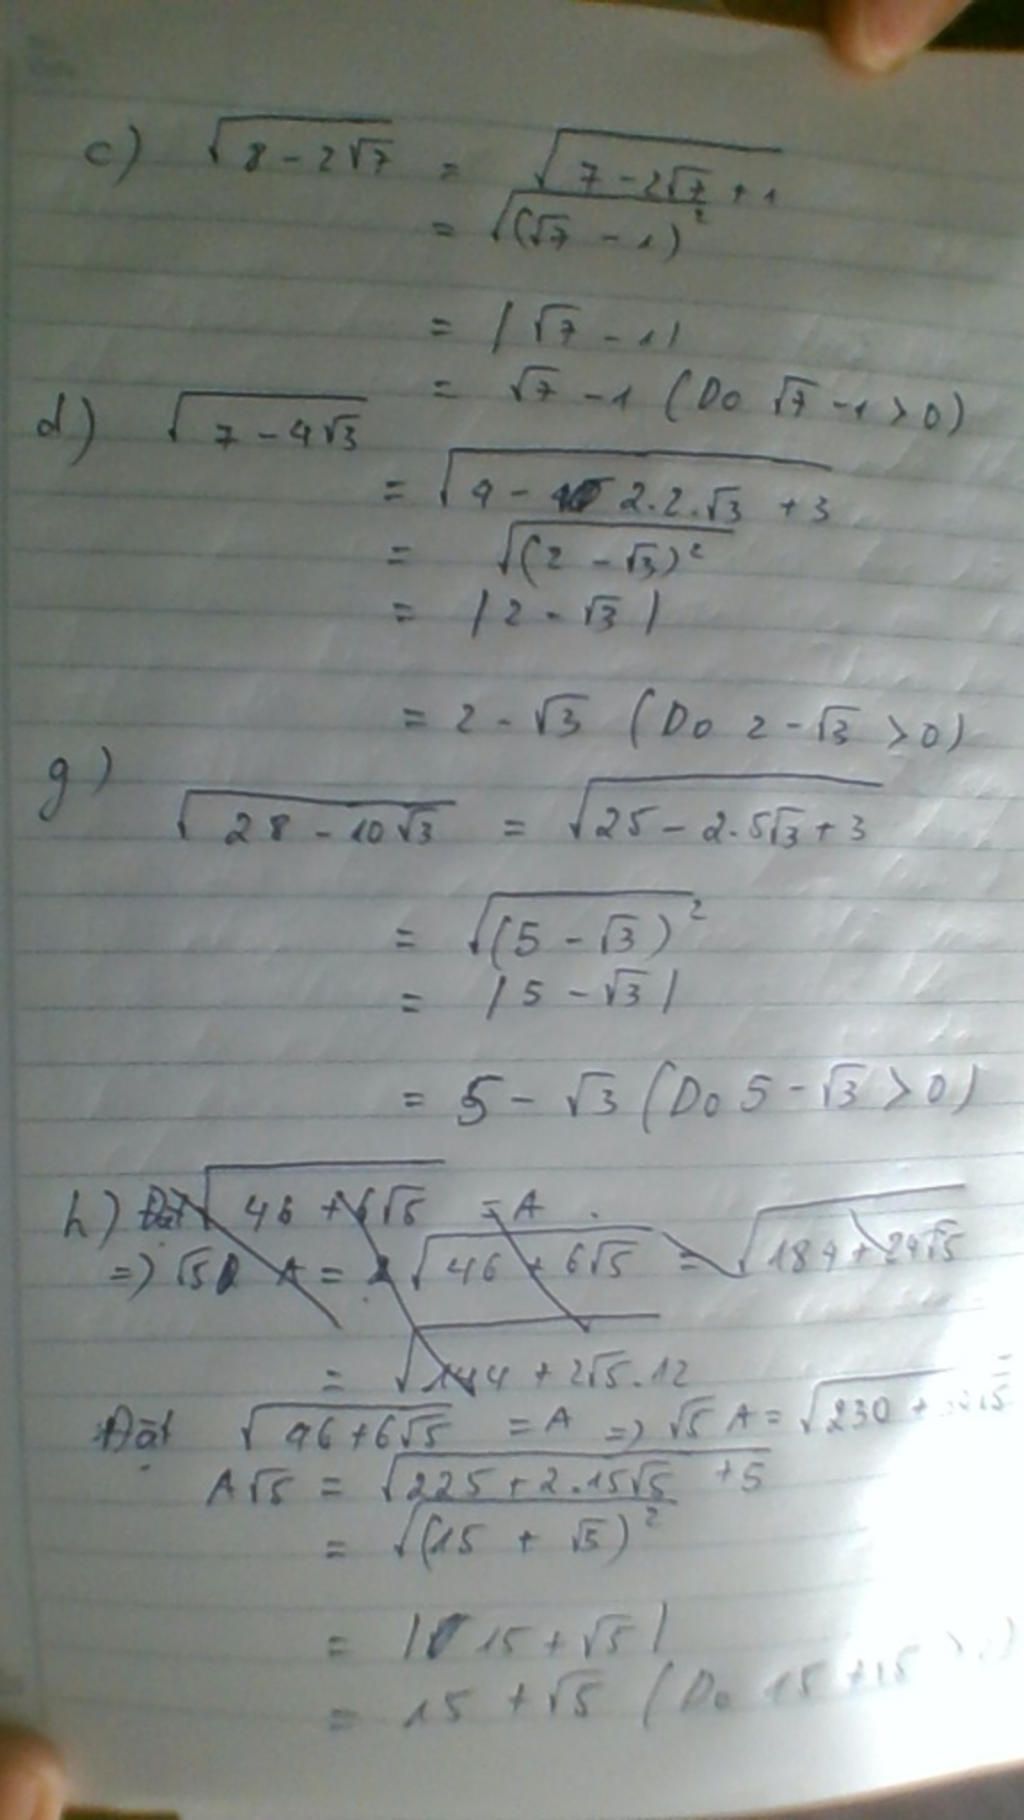 c) √(8 - 2√7) = √(7 - 2√7 + 1)
= √((√7 - 1)²)
= |√7 - 1|
= √7 - 1 (Do √7 - 1 > 0)
d) √(7 - 4√3)
= √(4 - 2.2.√3 + 3)
= √((2 - √3)²)
= |2 - √3|
= 2 - √3 (Do 2 - √3 > 0)
g)
√(28 - 10√3) = √(25 - 2.5√3 + 3)
= √((5 - √3)²)
= |5 - √3|
= 5 - √3 (Do 5 - √3 > 0)
h) Đặt √(46 + 6√5) = A
=) √5 A = √(46 + 6√5) = √(184 + 24√5)
= √(144 + 2√5.12
Đặt √(46 + 6√5) = A =) √5 A = √(230 +
A√5 = √(225 + 2.15√5 + 5)
= √((15 + √5)²)
= |15 + √5|
= 15 + √5 (Do 15 + √5 >